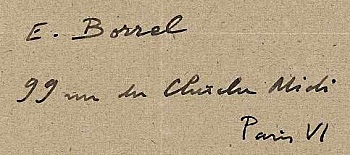 E. Borrel
99 rue du Cherche Midi
Paris VI